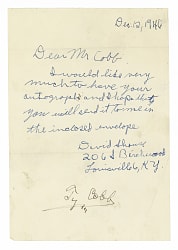 Dec. 12, 1946
Dear Mr Cobb
I would like very
much to have your
autograph and I hope that
you will send it to me in
the inclosed envelope
David
206 S Birchwood
Louisville 6, K.Y.
Ty Cobb